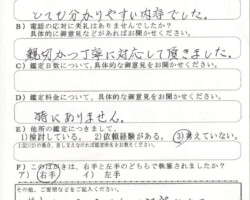 とても分かりやすい内容でした。
B) 電話の応対に失礼はありませんでしたか?
具体的に御意見などがあればお聞かせください。
親切かつ丁寧に対応して頂きました。
C) 鑑定日数について、具体的な御意見をお聞かせください。
D) 鑑定料金について、具体的な御意見をお聞かせください。
特にありません。
E) 他所の鑑定につきまして。
1)検討している。 2)依頼経験がある。 3)考えていない。
F) このはがきは、右手と左手のどちらで執筆されましたか?
ア) 右手 イ) 左手
その他、ご要望などをご記入ください。